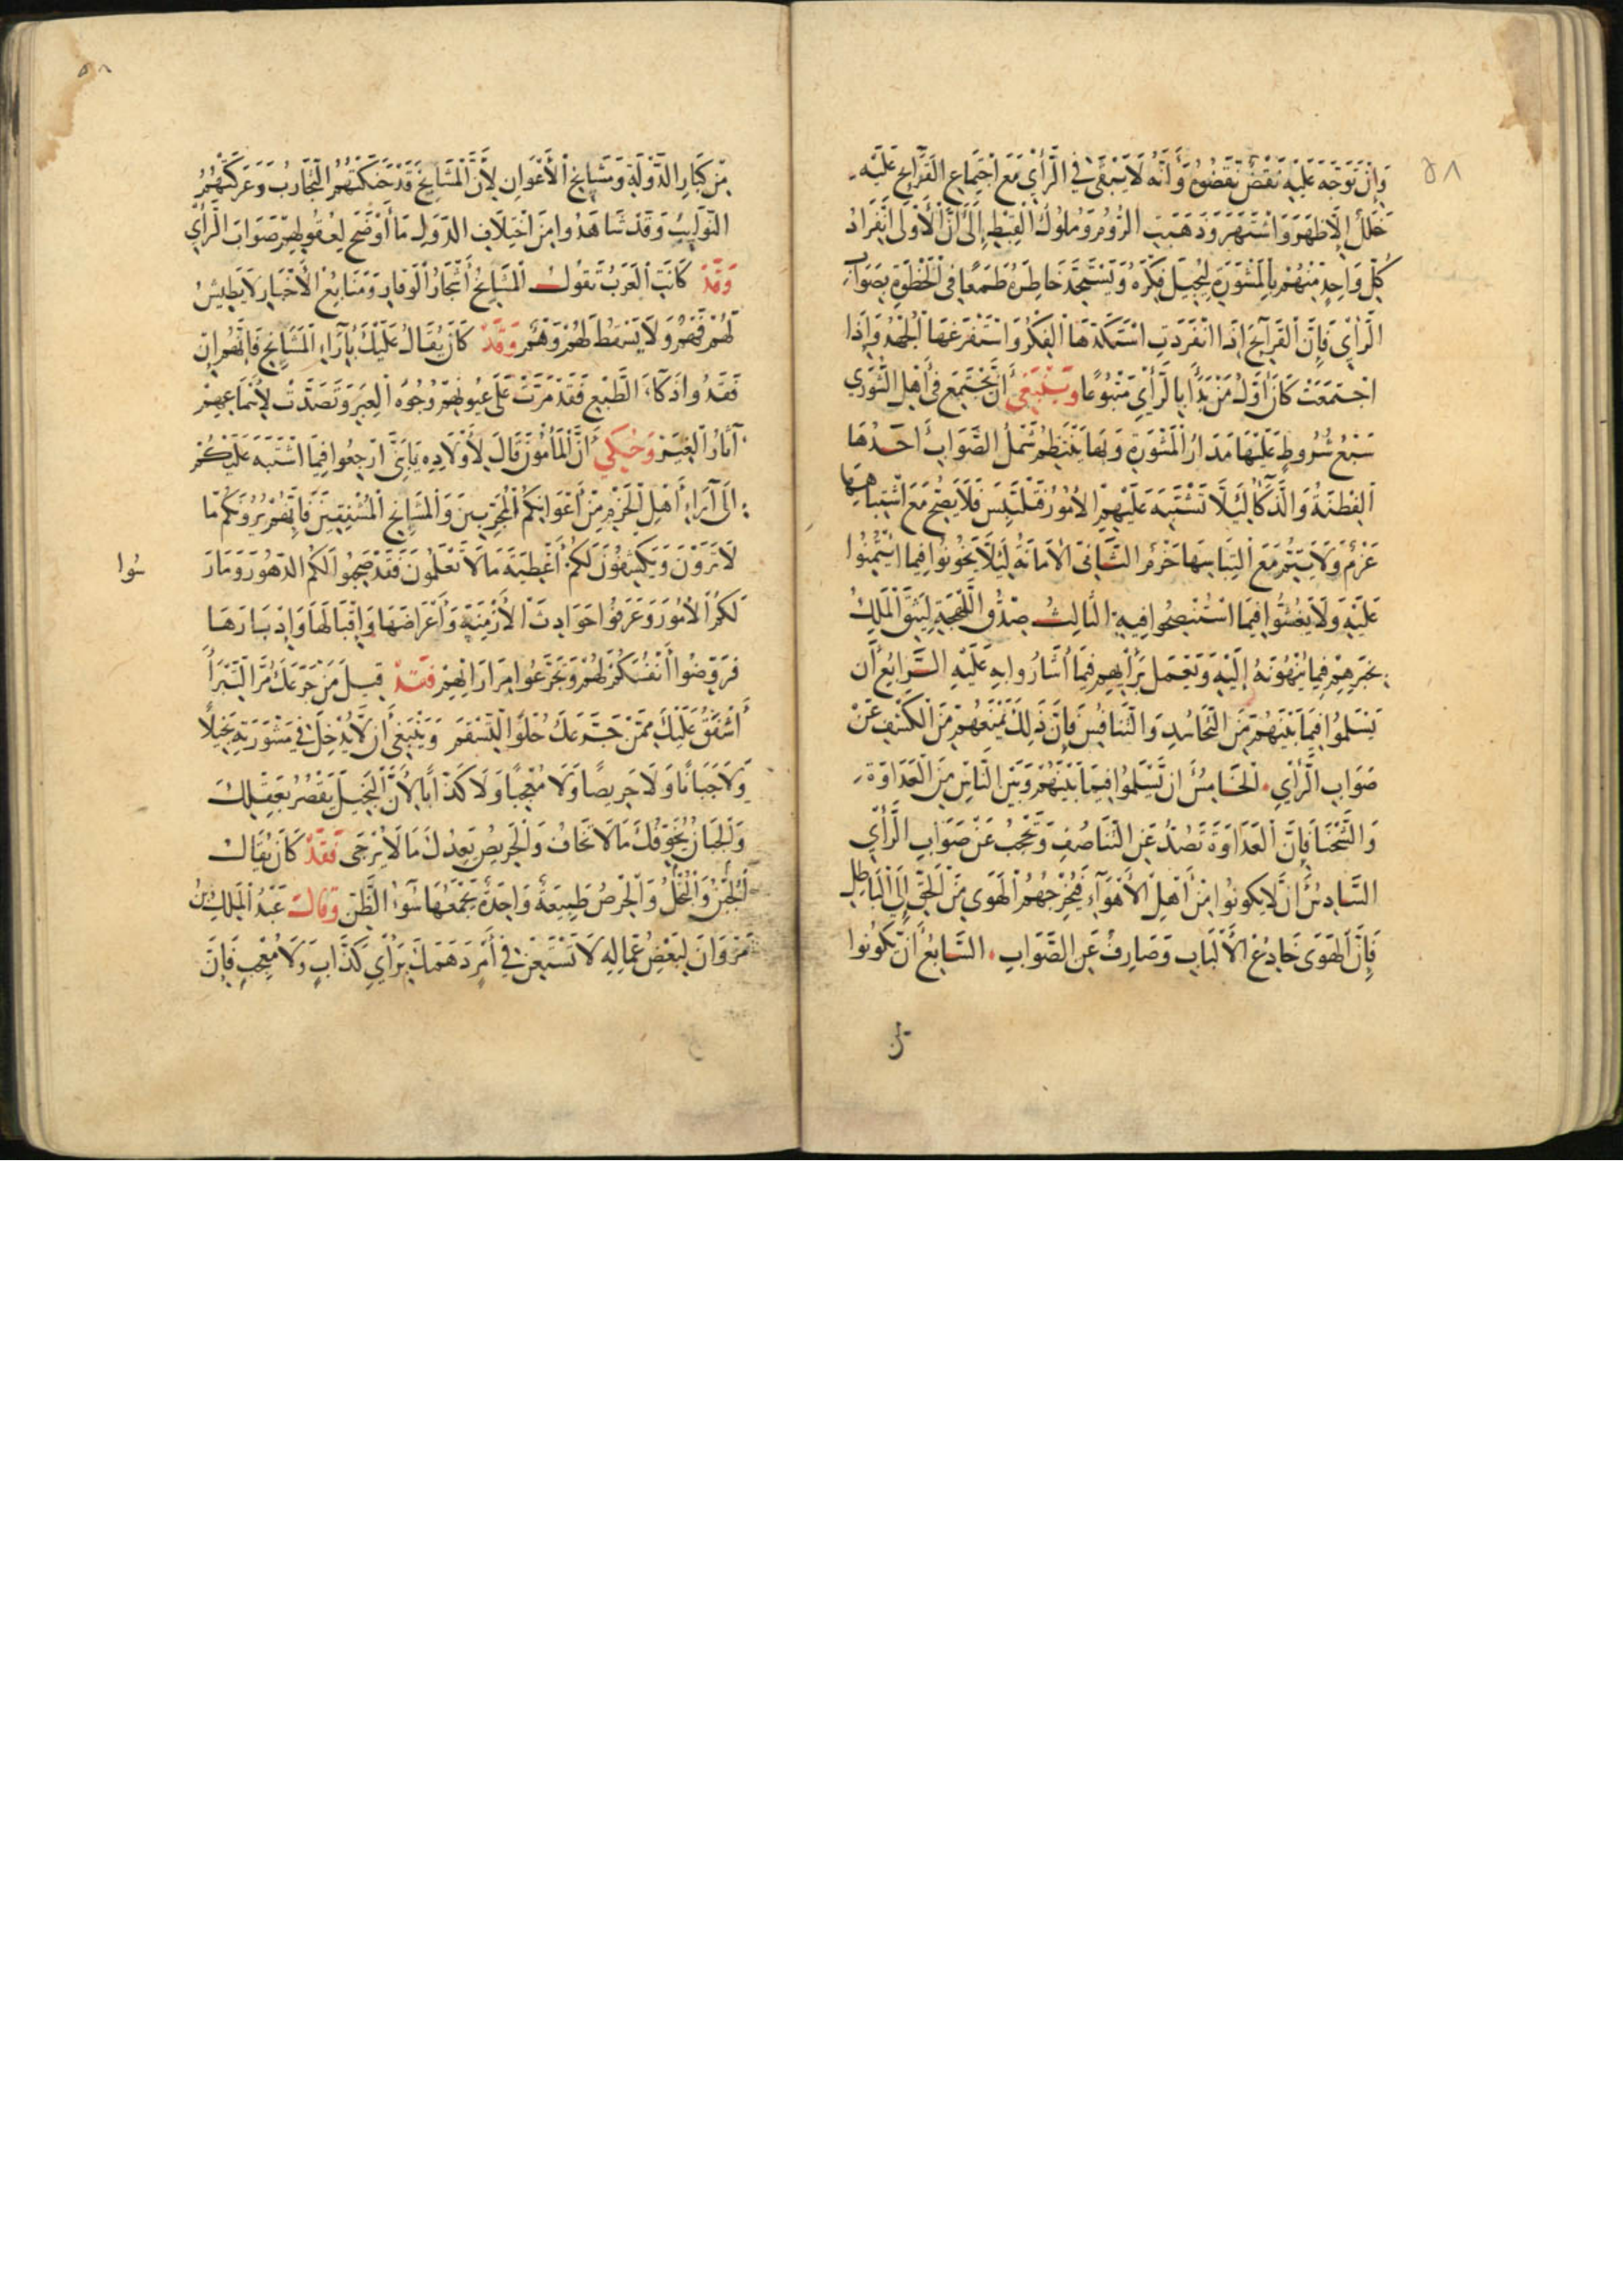 ٥٨
وَإِنْ تَوَجَّهَ عَلَيْهِ نَقْضٌ نَقَضُوهُ وَأَنَّهُ لَا يَبْقَى فِي الرَّأْيِ مَعَ اجْتِمَاعِ الْقَرَائِحِ عَلَيْهِ
خَلَلٌ إِلَّا ظَهَرَ وَاشْتَهَرَ وَذَهَبَتِ الرُّومُ وَمُلُوكُ الْقِبْطِ إِلَى أَنَّ الْأَوْلَى انْفِرَادُ
كُلِّ وَاحِدٍ مِنْهُمْ بِالْمَشْوَرَةِ لِيُجِيلَ فِكْرَهُ وَيَسْتَحِثَّ خَاطِرَهُ طَمَعًا فِي الْخُطْوَةِ بِصَوَابِ
الرَّأْيِ فَإِنَّ الْقَرَائِحَ إِذَا انْفَرَدَتِ اسْتَكَدَّهَا الْفِكْرُ وَاسْتَفْرَغَهَا الْجُهْدُ وَإِذَا
اجْتَمَعَتْ كَانَ أَوَّلُ مَنْ بَدَأَ بِالرَّأْيِ مَتْبُوعًا وَيَنْبَغِي أَنْ تَجْتَمِعَ فِي أَهْلِ الشُّورَى
سَبْعُ شُرُوطٍ عَلَيْهَا مَدَارُ الْمَشْوَرَةِ وَبِهَا يَنْتَظِمُ شَمْلُ الصَّوَابِ أَحَدُهَا
الْفِطْنَةُ وَالذَّكَاءُ لِئَلَّا تَشْتَبِهَ عَلَيْهِمُ الْأُمُورُ فَتَلْتَبِسَ فَلَا يَصِحُّ مَعَ اشْتِبَاهِهَا
عَزْمٌ وَلَا يَتِمُّ مَعَ الْتِبَاسِهَا حَزْمٌ الثَّانِي الْأَمَانَةُ لِئَلَّا يَخُونُوا فِيمَا ائْتُمِنُوا
عَلَيْهِ وَلَا يَغُشُّوا فِيمَا اسْتُنْصِحُوا فِيهِ الثَّالِثُ صِدْقُ اللَّهْجَةِ لِيَثِقَ الْمَلِكُ
بِخَبَرِهِمْ فِيمَا يُنْهُونَهُ إِلَيْهِ وَيَعْمَلَ بِرَأْيِهِمْ فِيمَا أَشَارُوا بِهِ عَلَيْهِ الرَّابِعُ أَنْ
يَسْلَمُوا فِيمَا بَيْنَهُمْ مِنَ التَّحَاسُدِ وَالتَّنَافُسِ فَإِنَّ ذَلِكَ يَمْنَعُهُمْ مِنَ الْكَشْفِ عَنْ
صَوَابِ الرَّأْيِ الْخَامِسُ أَنْ يَسْلَمُوا فِيمَا بَيْنَهُمْ وَبَيْنَ النَّاسِ مِنَ الْعَدَاوَةِ
وَالشَّحْنَاءِ فَإِنَّ الْعَدَاوَةَ تَصُدُّ عَنِ التَّنَاصُفِ وَتَحْجُبُ عَنْ صَوَابِ الرَّأْيِ
السَّادِسُ أَنْ لَا يَكُونُوا مِنْ أَهْلِ الْأَهْوَاءِ فَيُخْرِجُهُمُ الْهَوَى مِنَ الْحَقِّ إِلَى الْبَاطِلِ
فَإِنَّ الْهَوَى خَادِعُ الْأَلْبَابِ وَصَارِفٌ عَنِ الصَّوَابِ السَّابِعُ أَنْ يَكُونُوا
من
٥٨
مِنْ كِبَارِ الدَّوْلَةِ وَمَشَايِخِ الْأَعْوَانِ لِأَنَّ الْمَشَايِخَ قَدْ حَنَّكَتْهُمُ التَّجَارِبُ وَعَرَكَتْهُمُ
النَّوَائِبُ وَقَدْ شَاهَدُوا مِنَ اخْتِلَافِ الدُّوَلِ مَا أَوْضَحَ لِعُقُولِهِمْ صَوَابَ الرَّأْيِ
وَقَدْ كَانَتِ الْعَرَبُ تَقُولُ الْمَشَايِخُ أَشْجَارُ الْوَقَارِ وَمَنَابِعُ الْأَخْبَارِ لَا يَطِيشُ
لَهُمْ فَهْمٌ وَلَا يَسْقُطُ لَهُمْ وَهْمٌ وَقَدْ كَانَ يُقَالُ عَلَيْكَ بِآرَاءِ الْمَشَايِخِ فَإِنَّهُمْ إِنْ
فَقَدُوا ذَكَاءَ الطَّبْعِ فَقَدْ مَرَّتْ عَلَى عُيُونِهِمْ وُجُوهُ الْعِبَرِ وَتَصَدَّتْ لِأَسْمَاعِهِمْ
آثَارُ الْغِيَرِ وَحُكِيَ أَنَّ الْمَأْمُونَ قَالَ لِأَوْلَادِهِ يَا بَنِيَّ ارْجِعُوا فِيمَا اشْتَبَهَ عَلَيْكُمْ
إِلَى آرَاءِ أَهْلِ الْحَزْمِ مِنْ أَعْوَانِكُمُ الْمُجَرِّبِينَ وَالْمَشَايِخِ الْمُشْفِقِينَ فَإِنَّهُمْ يُرُونَكُمْ مَا
لَا تَرَوْنَ وَيَكْشِفُونَ لَكُمْ أَغْطِيَةَ مَا لَا تَعْلَمُونَ فَقَدْ صَحِبُوا لَكُمُ الدُّهُورَ وَمَارَ
سُوا
لَكُمُ الْأُمُورَ وَعَرَفُوا حَوَادِثَ الْأَزْمِنَةِ وَأَعْرَاضَهَا وَإِقْبَالَهَا وَإِدْبَارَهَا
فَرَوِّضُوا أَنْفُسَكُمْ لَهُمْ وَتَجَرَّعُوا مَرَارَاتِهِمْ فَقَدْ قِيلَ مَنْ جَرَّعَكَ مُرًّا لِتَبْرَأَ
أَشْفَقُ عَلَيْكَ مِمَّنْ جَرَّعَكَ حُلْوًا لِتَسْقَمَ وَيَنْبَغِي أَنْ لَا يُدْخِلَ فِي مَشْوَرَتِهِ بَخِيلًا
وَلَا جَبَانًا وَلَا حَرِيصًا وَلَا مُعْجَبًا وَلَا كَذَّابًا لِأَنَّ الْبَخِيلَ يَقْصُرُ بِعَقْلِكَ
وَالْجَبَانُ يُخَوِّفُكَ مَا لَا تَخَافُ وَالْحَرِيصُ يَعِدُكَ مَا لَا يُرْجَى فَقَدْ كَانَ يُقَالُ
الْجُبْنُ وَالْبُخْلُ وَالْحِرْصُ طَبِيعَةٌ وَاحِدَةٌ يَجْمَعُهَا سُوءُ الظَّنِّ وَقَالَ عَبْدُ الْمَلِكِ بْنُ
مَرْوَانَ لِبَعْضِ عُمَّالِهِ لَا تَسْتَعِنْ فِي أَمْرٍ دَهَمَكَ بِرَأْيِ كَذَّابٍ وَلَا مُعْجَبٍ فَإِنَّ